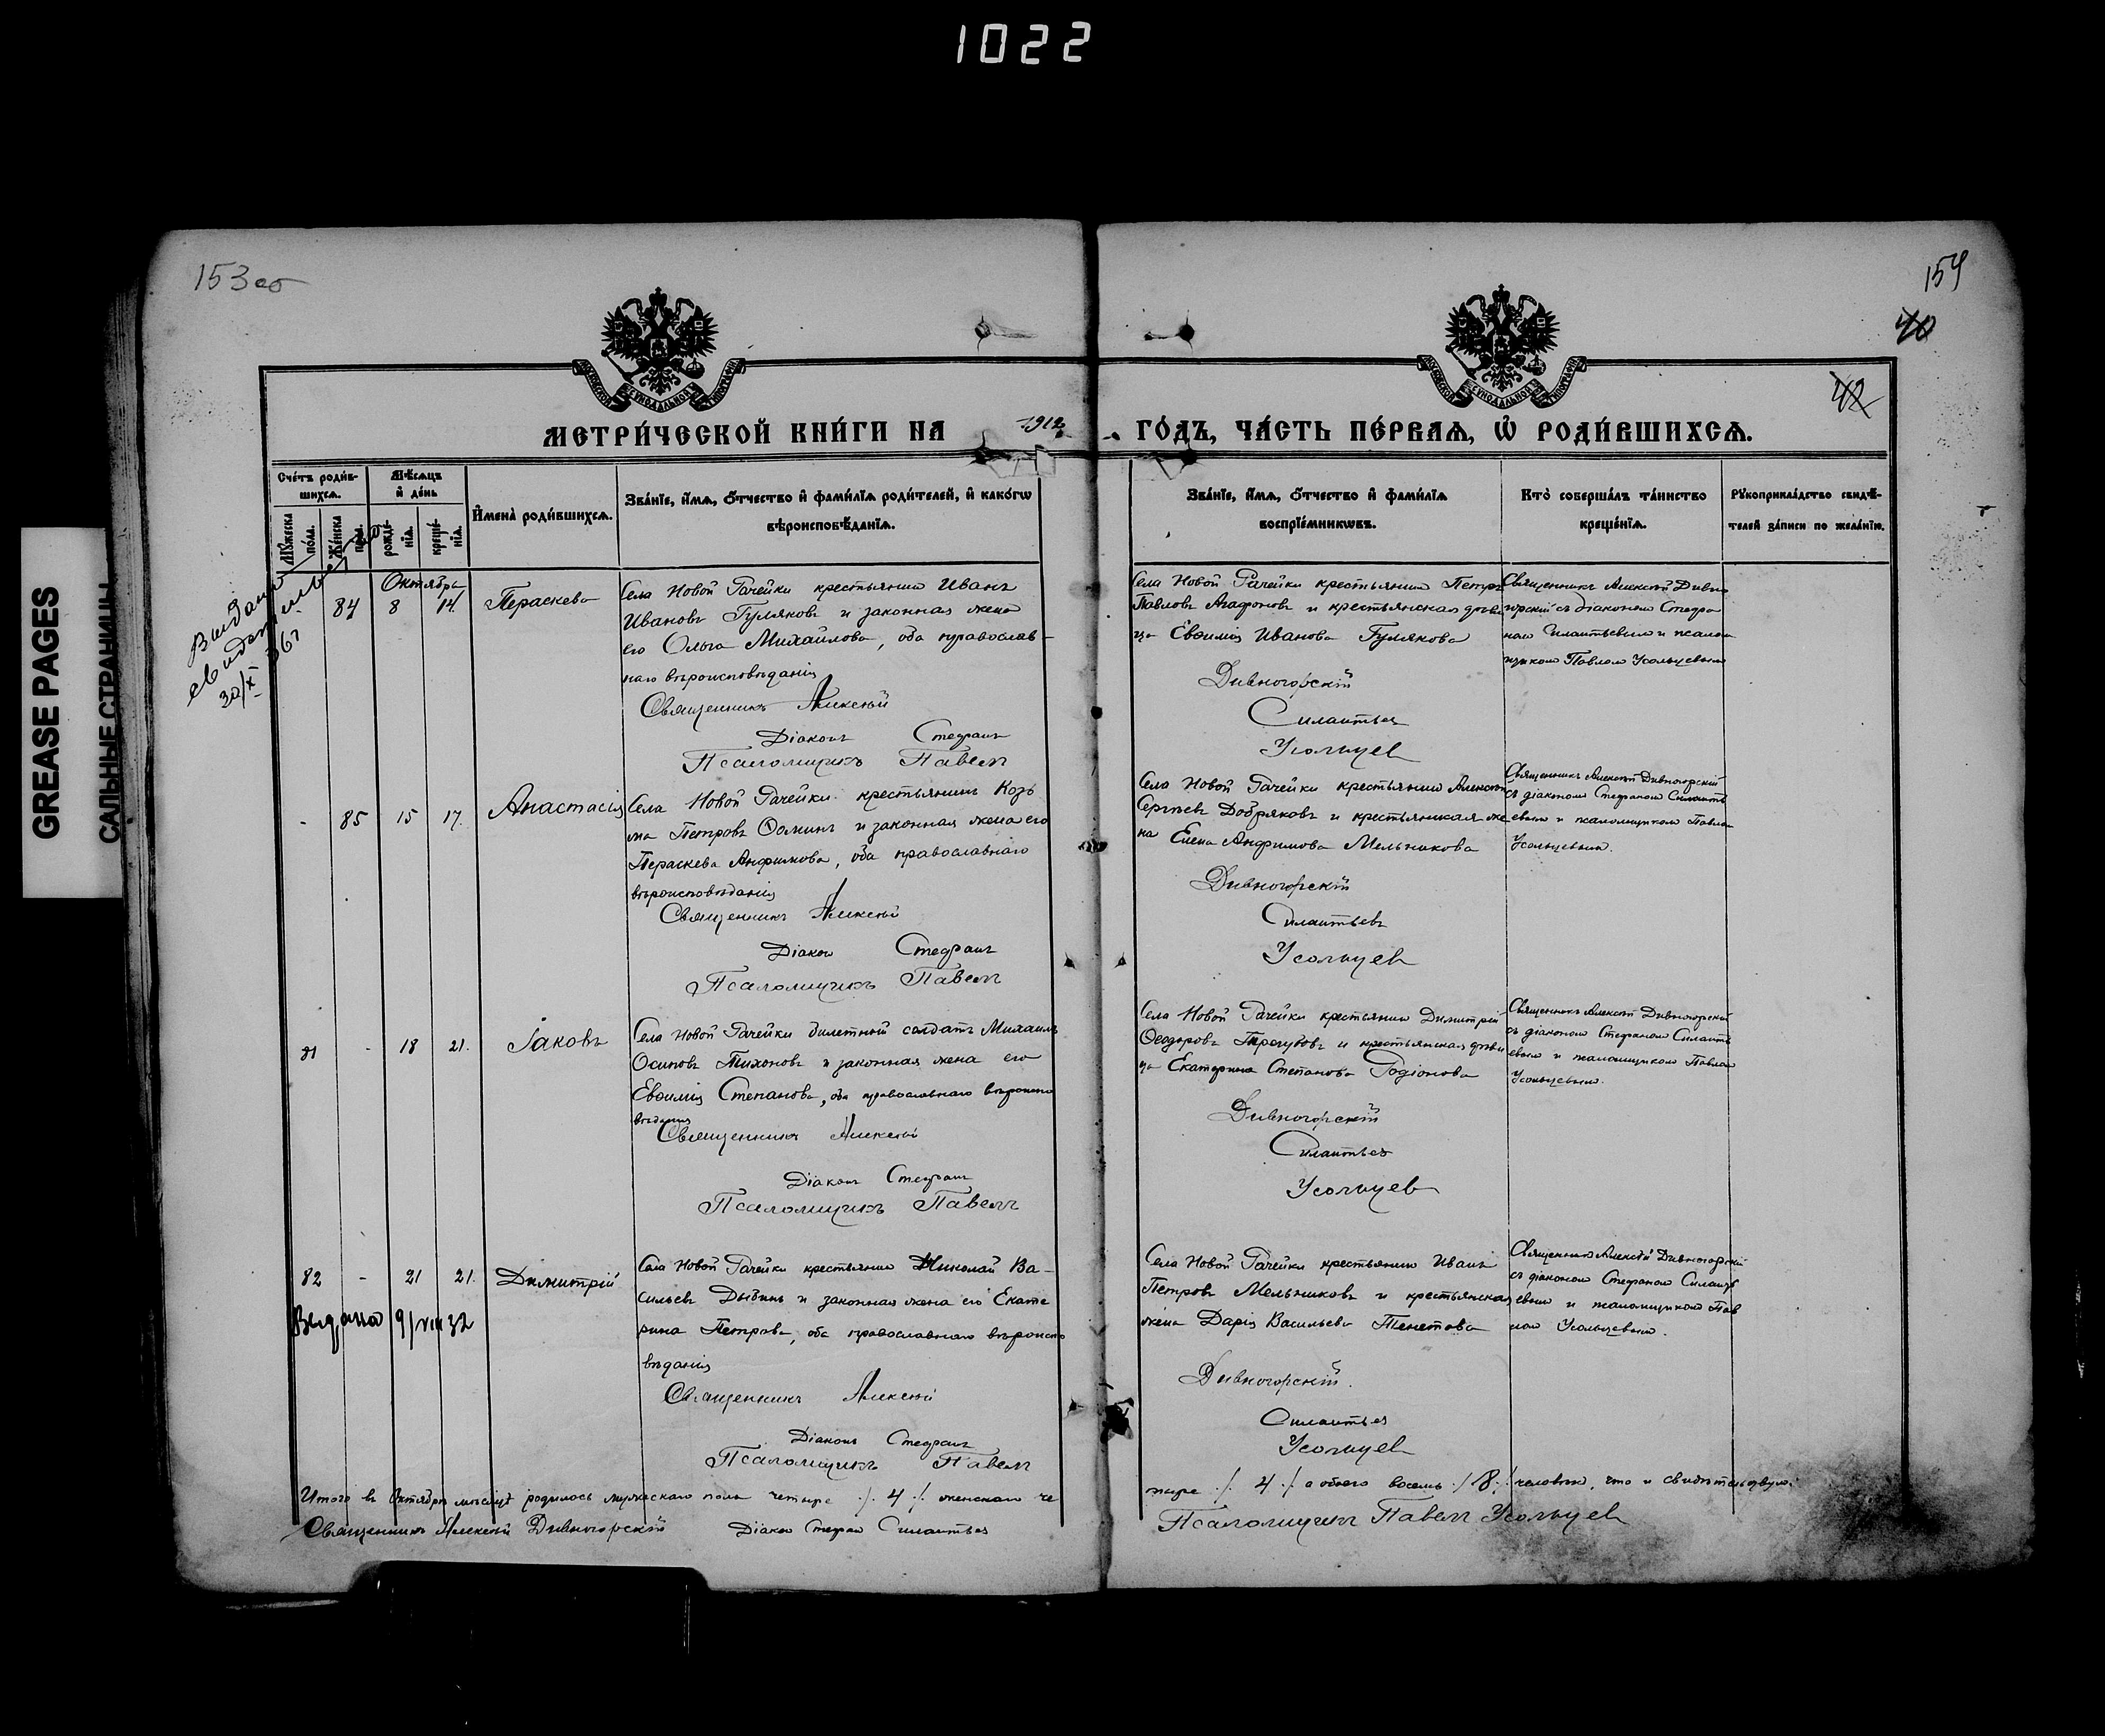 1022
GREASE PAGES
САЛЬНЫЕ СТРАНИЦЫ
153 об
154
40
42
МОСКОВСКОЙ СУНОДАЛЬНОЙ ТИПОГРАФІИ
МОСКОВСКОЙ СУНОДАЛЬНОЙ ТИПОГРАФІИ
МЕТРИ́ЧЕСКОЙ КНИ́ГИ НА 1912 ГО́ДЪ, ЧА́СТЬ ПЕ́РВАѦ, Ѡ҆ РОДИ́ВШИХСѦ.
Сче́тъ роди́в-
шихсѧ.
Мѣ́сѧцъ
и҆ де́нь
Мꙋ́жеска
по́ла.
Же́нска
по́ла.
рожде́-
нїѧ.
креще́-
нїѧ.
И҆мена̀ роди́вшихсѧ.
Зва́нїе, и҆́мѧ, ѻ҆́тчество и҆ фами́лїѧ роди́телей, и҆ како́гѡ
вѣроисповѣ́данїѧ.
Зва́нїе, и҆́мѧ, ѻ҆́тчество и҆ фами́лїѧ
воспрїе́мникѡвъ.
Кто̀ соверша́лъ та́инство
креще́нїѧ.
Рꙋкоприкла́дство свидѣ́-
телей за́писи по жела́нїю.
Выдано
свидетельство
30/X 36 г
Октября
84 8 14 Параскева
Села Новой Рачейки крестьянин Иванъ
Ивановъ Гуляковъ и законная жена
его Ольга Михайлова, оба православ-
наго вѣроисповѣданія
Священникъ Алексѣй
Діаконъ Стефанъ
Псаломщикъ Павелъ
Села Новой Рачейки крестьянин Петръ
Павловъ Агафоновъ и крестьянская дѣви
ца Евѳимія Иванова Гулякова
Дивногорскій
Силантьев
Усольцев
Священникъ Алексѣй Дивно
горскій съ діаконом Стефа
ном Силантьевым и псалом
щиком Павлом Усольцевым
- 85 15 17. Анастасія
Села Новой Рачейки крестьянинъ Козь
ма Петровъ Ѳоминъ и законная жена его
Параскева Анфимова, оба православнаго
вѣроисповѣданія
Священникъ Алексѣй
Діакон Стефанъ
Псаломщикъ Павелъ
Села Новой Рачейки крестьянин Алексѣй
Сергѣевъ Добряковъ и крестьянская же
на Елена Анфимова Мельникова
Дивногорскій
Силантьевъ
Усольцев
Священникъ Алексѣй Дивногорскій
съ діаконом Стефаном Силанть
евым и псаломщиком Павлом
Усольцевым.
81 - 18 21. Іаковъ
Села Новой Рачейки билетный солдатъ Михаилъ
Осиповъ Тихоновъ и законная жена его
Евѳимія Степанова, оба православнаго вѣроиспо
вѣданія
Священникъ Алексѣй
Діаконъ Стефанъ
Псаломщикъ Павелъ
Села Новой Рачейки крестьянин Димитрій
Ѳеодоровъ Трегубовъ и крестьянская дѣви
ца Екатерина Степанова Родіонова
Дивногорскій
Силантьев
Усольцев
Священникъ Алексѣй Дивногорскій
съ діаконом Стефаном Силанть
евым и псаломщиком Павлом
Усольцевым.
82 - 21 21. Димитрій
Выдано 9/VIII 32
Села Новой Рачейки крестьянин Николай Ва-
сильевъ Дыбинъ и законная жена его Екате
рина Петрова, оба православнаго вѣроиспо
вѣданія
Священникъ Алексѣй
Діаконъ Стефанъ
Псаломщикъ Павелъ
Села Новой Рачейки крестьянин Иванъ
Петровъ Мельниковъ и крестьянская
жена Дарія Васильева Тенетова
Дивногорскій.
Силантьев
Усольцев
Священник Алексѣй Дивногорскій
съ діаконом Стефаном Силанть
евым и псаломщиком Пав
лом Усольцевым.
Итого въ Октябрѣ мѣсяцѣ родилось мужескаго пола четыре ./. 4 ./. женскаго че
тыре ./. 4 ./. а обоего восемь ./. 8 ./. человѣк, что и свидѣтельствуем:
Священникъ Алексѣй Дивногорскій Діакон Стефан Силантьев
Псаломщикъ Павелъ Усольцев